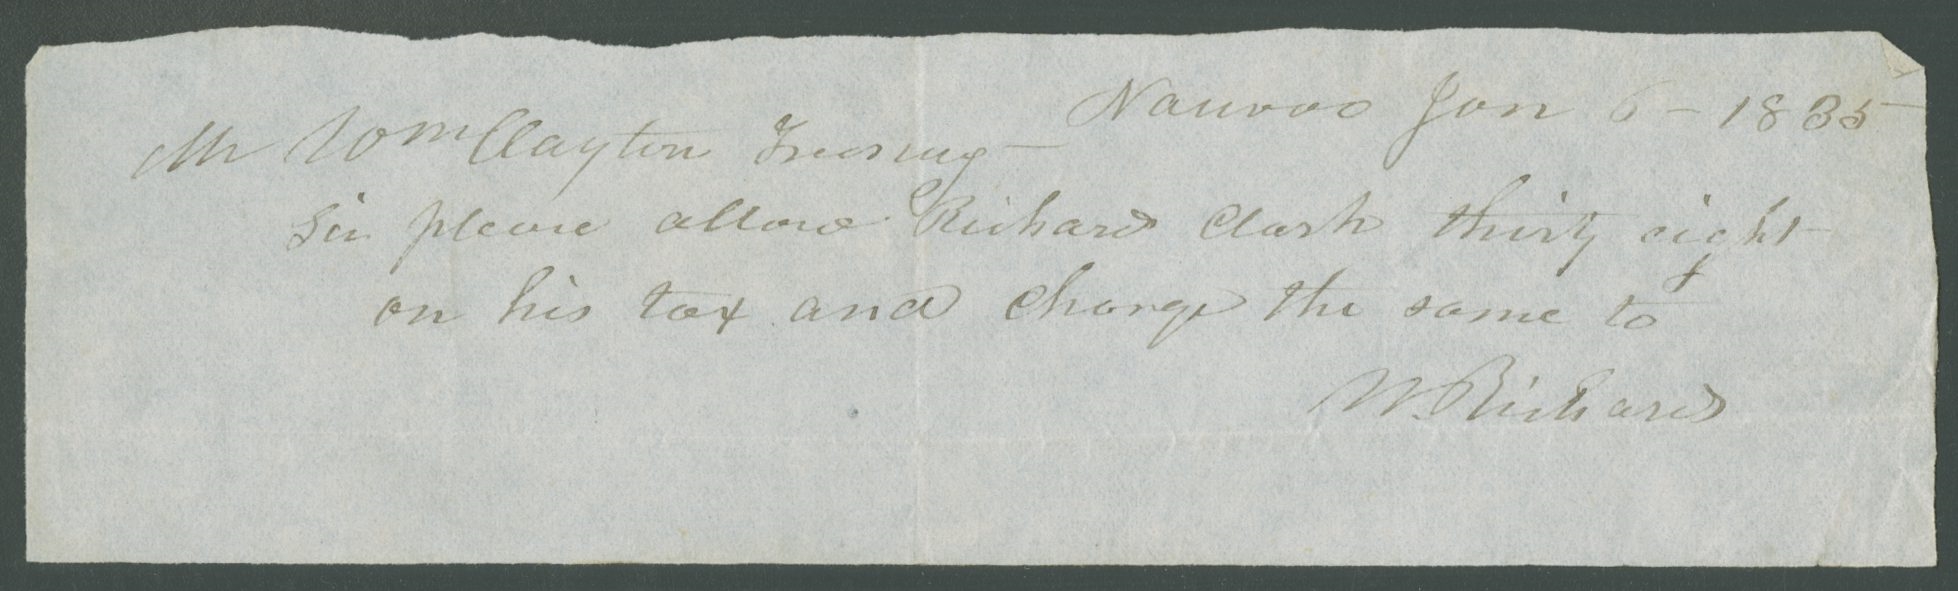 Nauvoo Jan 6 - 1835
Mr Wm Clayton
Sir please allow Richard Clark thirty eight
on his tax and charge the same to
W. Richards